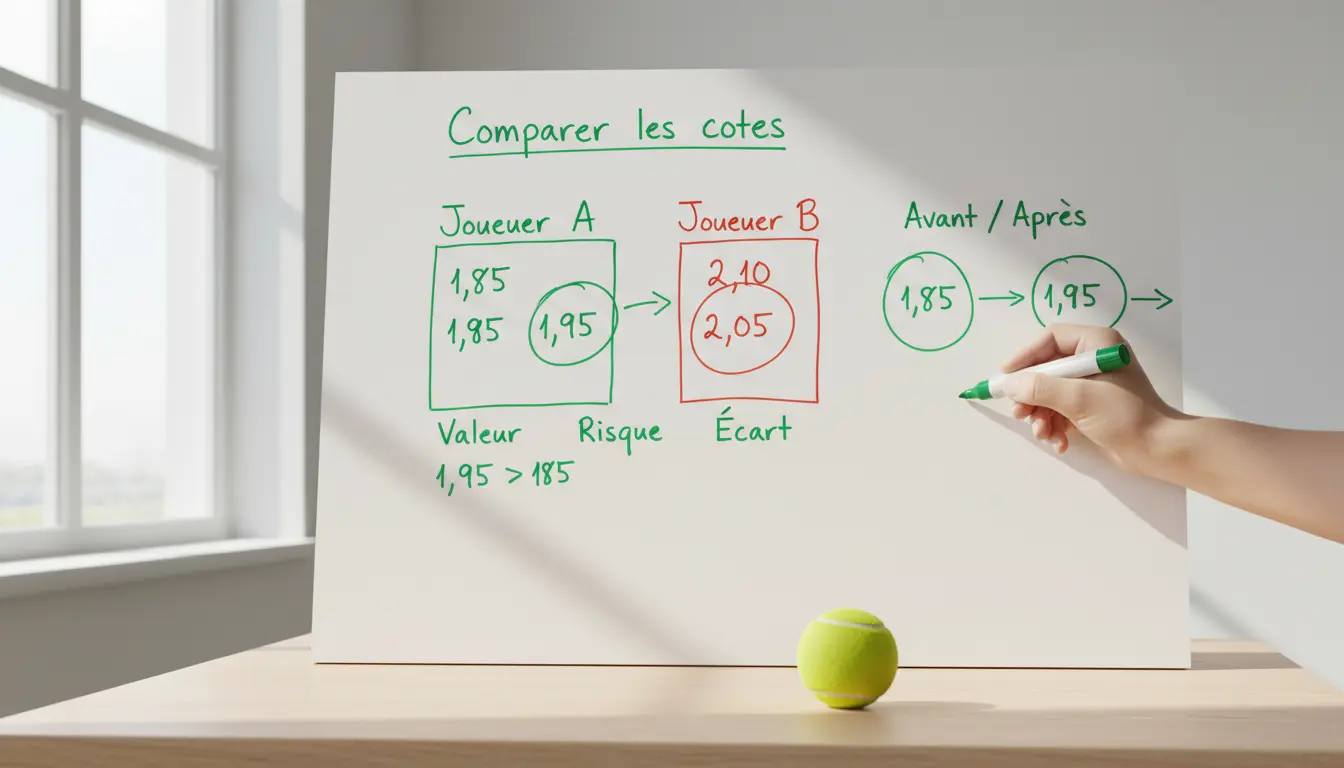 Comparer les cotes
Joueuer A
1,85
1,95 1,95
Joueuer B
2,10
2,05
Avant / Après
1,85 1,95
Valeur Risque Écart
1,95 > 185